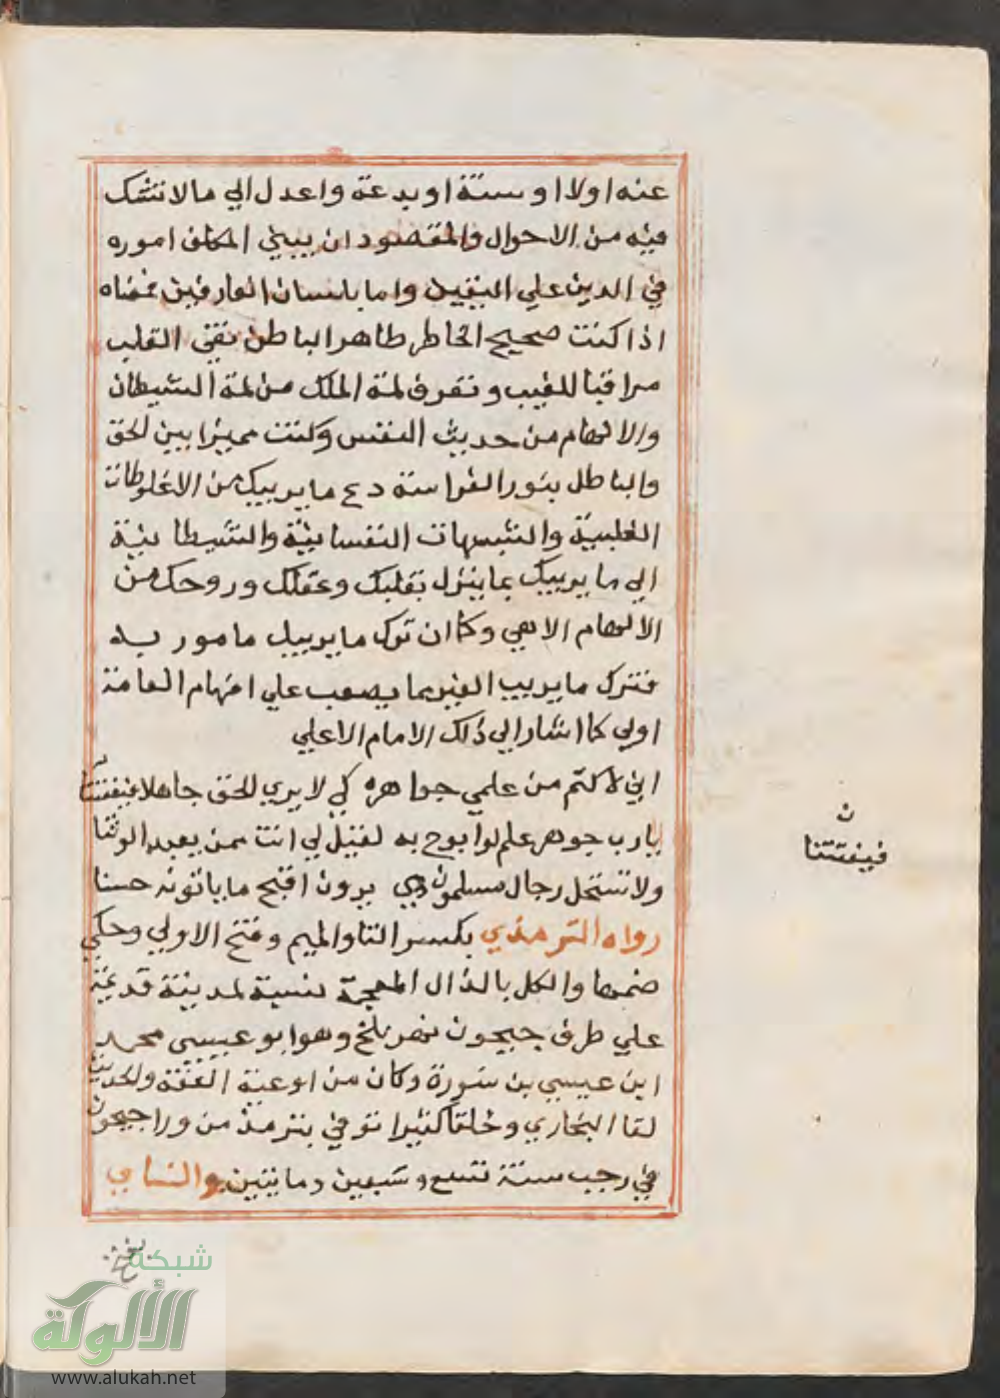 عنه اولا او سنة او بدعة واعدل الي مالا تشك
فيه من الاحوال والمقصود ان يبني المكلف اموره
في الدين علي اليقين واما بلسان العارفين فمعناه
اذا كنت صحيح الخاطر طاهر الباطن نقي القلب
مراقبا للغيب وتعرف لمة الملك من لمة الشيطان
والالهام من حديث النفس وكنت مميزا بين الحق
والباطل بنور الفراسة دع ما يريبك من الاغلوطات
القلبية والشبهات النفسانية والشيطانية
الي ما يريبك بما ينزل بقلبك وعقلك وروحك من
الالهام الالهي وكما ان ترك ما يريبك مامور به
فترك ما يريب الغير مما يصعب علي افهام العامة
اولي كما اشار الي ذلك الامام الاعلي
اني لاكتم من علمي جواهره كي لا يري الحق جاهلا فيفتتنا
يا رب جوهر علم لو ابوح به لقيل لي انت ممن يعبد الوثنا
ولا ستحل رجال مسلمون دمي يرون اقبح ما ياتونه حسنا
رواه الترمذي بكسر التا والميم وفتح الاولي وحكي
ضمها والكل بالذال المعجمة نسبة لمدينة قديمة
علي طرف جيحون نهر بلخ وهو ابو عيسي محمد
ابن عيسي بن سورة وكان من اوعية الفقه والحديث
لقا البخاري وخلقا كثيرا توفي بترمذ من ورا جيحون
في رجب سنة تسع وسبعين ومايتين والنسايي
ن
فيفتتنا
شبكة
الألوكة
www.alukah.net